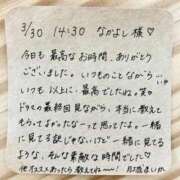 3/30 14:30 なかよし様♡
今日も最高なお時間、ありがとう
ございました。いつものことながら…
いつも以上に、最高でしたね。笑
ドラマの最終回見ながら、本当に教えて
もらってよかったなーって思ったよ。一緒
に見てる訳じゃないけど、一緒に見てる
ような、そんな素敵な時間でした♡
他オススメあったら教えてねー!